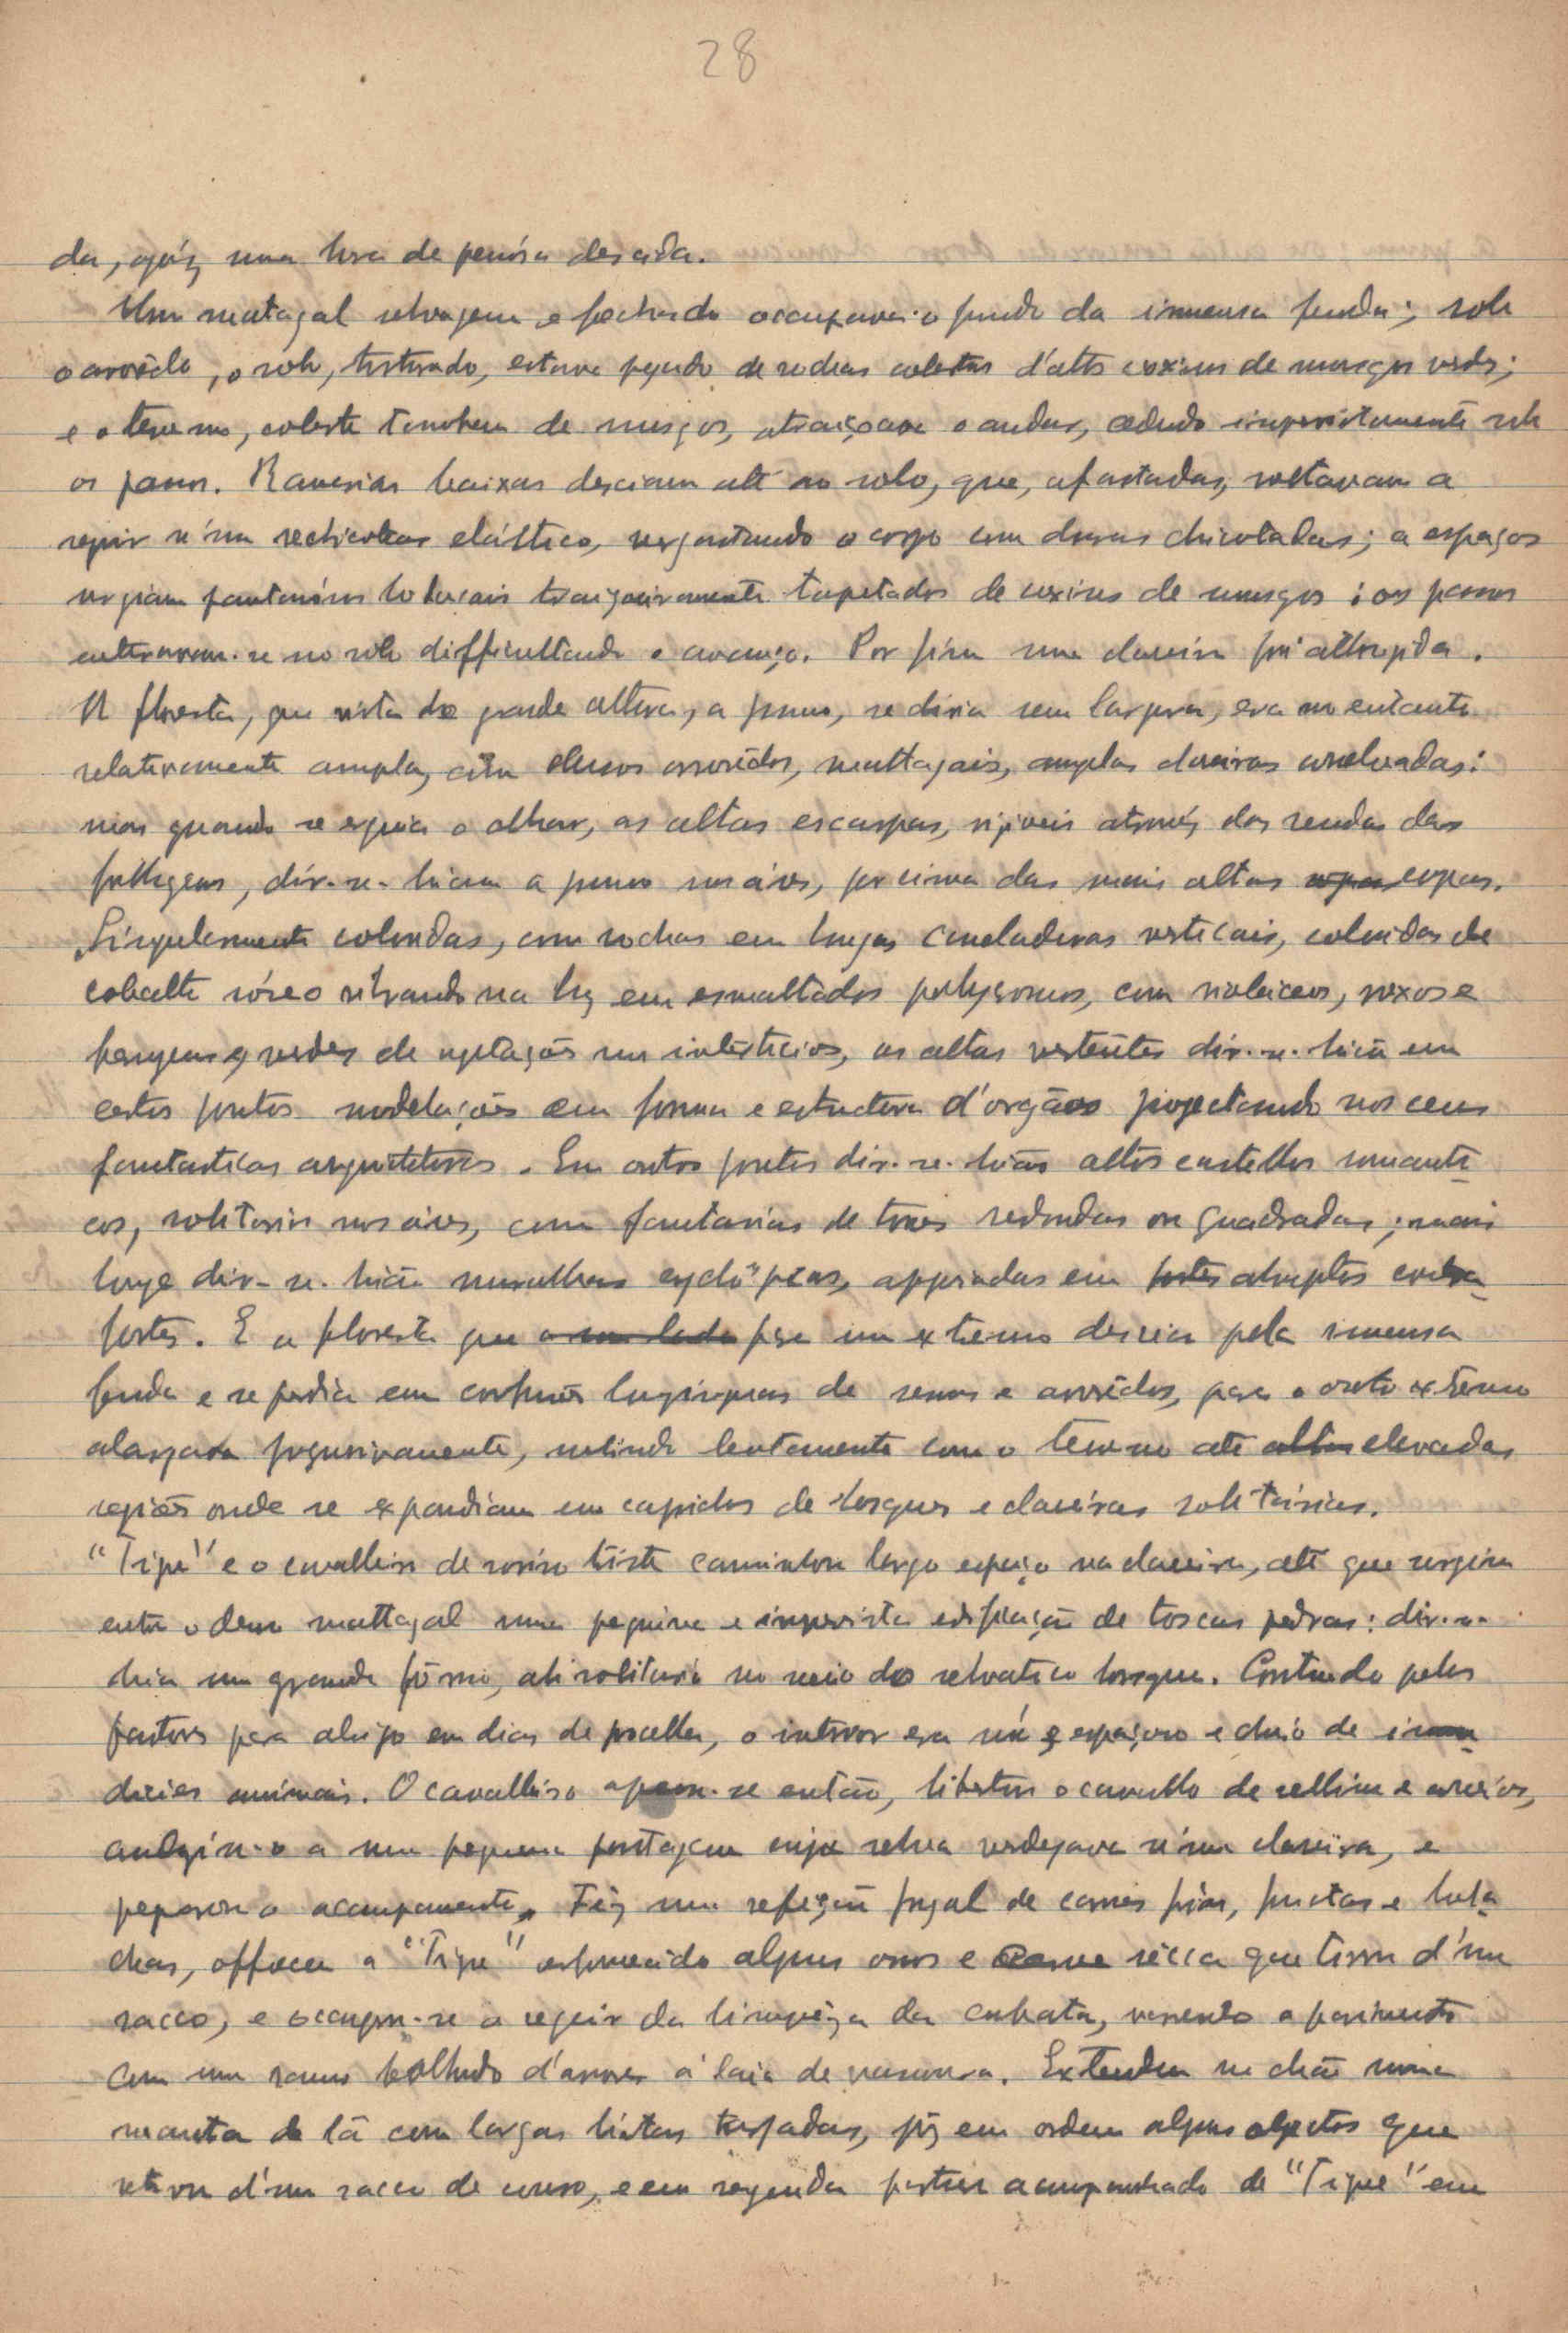 28
da, após uma hora de penósa descida.
Um matagal selvagem e fechado occupava o fundo da immensa fenda; sob
o arvorêdo, o solo, torturado, estava pejado de rochas cobertas d'altos coxins de musgos verdes;
e o terreno, coberto tambem de musgos, atraiçoava o andar, cedendo imprevistamente sob
os passos. Ramarias baixas desciam até ao solo, que, afastadas, voltavam a
reunir n'um elástico, vergastando o corpo com duras chicotadas; a espaços
surgiam pantanósos lodaçais traiçoeiramente tapetados de coxins de musgos; os passos
enterravam-se no solo difficultando o avanço. Por fim uma clareira foi attingida.
A floresta, que vista de grande altura, a prumo, se diria sem largura, era no entanto
relativamente ampla, com densos arvorêdos, mattagais, amplas clareiras arrelvadas:
mas quando se erguia o olhar, as altas escarpas, visiveis através das rendas das
folhagens, dir-se-hiam a prumo nos áres, por cima das mais altas copas.
Singularmente coloridas, com rochas em longas caneladuras verticais, coloridas de
cobalto róseo vibrando na luz em esmaltados polygonos, com violaceos, roxos e
verdes de vegetação nos intersticios, as altas vertentes dir-se-hião em
certos pontos modelações em forma e estructura d'orgãos projectando nos ceus
fantasticas arquitéturas. Em outros pontos dir-se-hião altos castellos romanti-
cos, solitarios nos áres, com fantasias de torres redondas ou quadradas; mais
longe dir-se-hião muralhas cyclópicas, appoiadas em abruptos contra-
fortes. E a floresta que para um extremo descia pela immensa
fenda e se perdia em confusões longinquas de ramos e arvorêdos, para o outro extremo
alargava progressivamente, subindo lentamente com o terreno até elevadas
regiões onde se expandiam em caprichos de bosques e clareiras solitárias.
"Tigre" e o cavalleiro de sorriso triste caminhou largo espaço na clareira, até que surgira
entre o denso mattagal uma pequena e imprevista edificação de toscas pedras: dir-se-
hia um grande fôrno, ali solitario no meio do selvatico bosque. Construido pelos
pastores para abrigo em dias de procella, o interior era nú e espaçoso e cheio de immun-
dicies animais. O cavalleiro apeou-se então, libertou o cavallo de sellim e arreios,
conduziu-o a uma pequena pastagem cuja relva verdejava n'uma clareira, e
preparou o acampamento. Fêz uma refeição frugal de carnes frias, fructas e bola-
chas, offereceu a "Tigre" esfomeado alguns ossos e carne sêcca que tirou d'um
sacco, e occupou-se a seguir da limpêza da cubata, varrendo o pavimento
com um ramo folhudo d'arvore á laia de vassoura. Extendeu no chão uma
manta de lã com largas listas, pôz em ordem alguns objectos que
retirou d'um sacco de couro, e em seguida partiu acompanhado de "Tigre" em